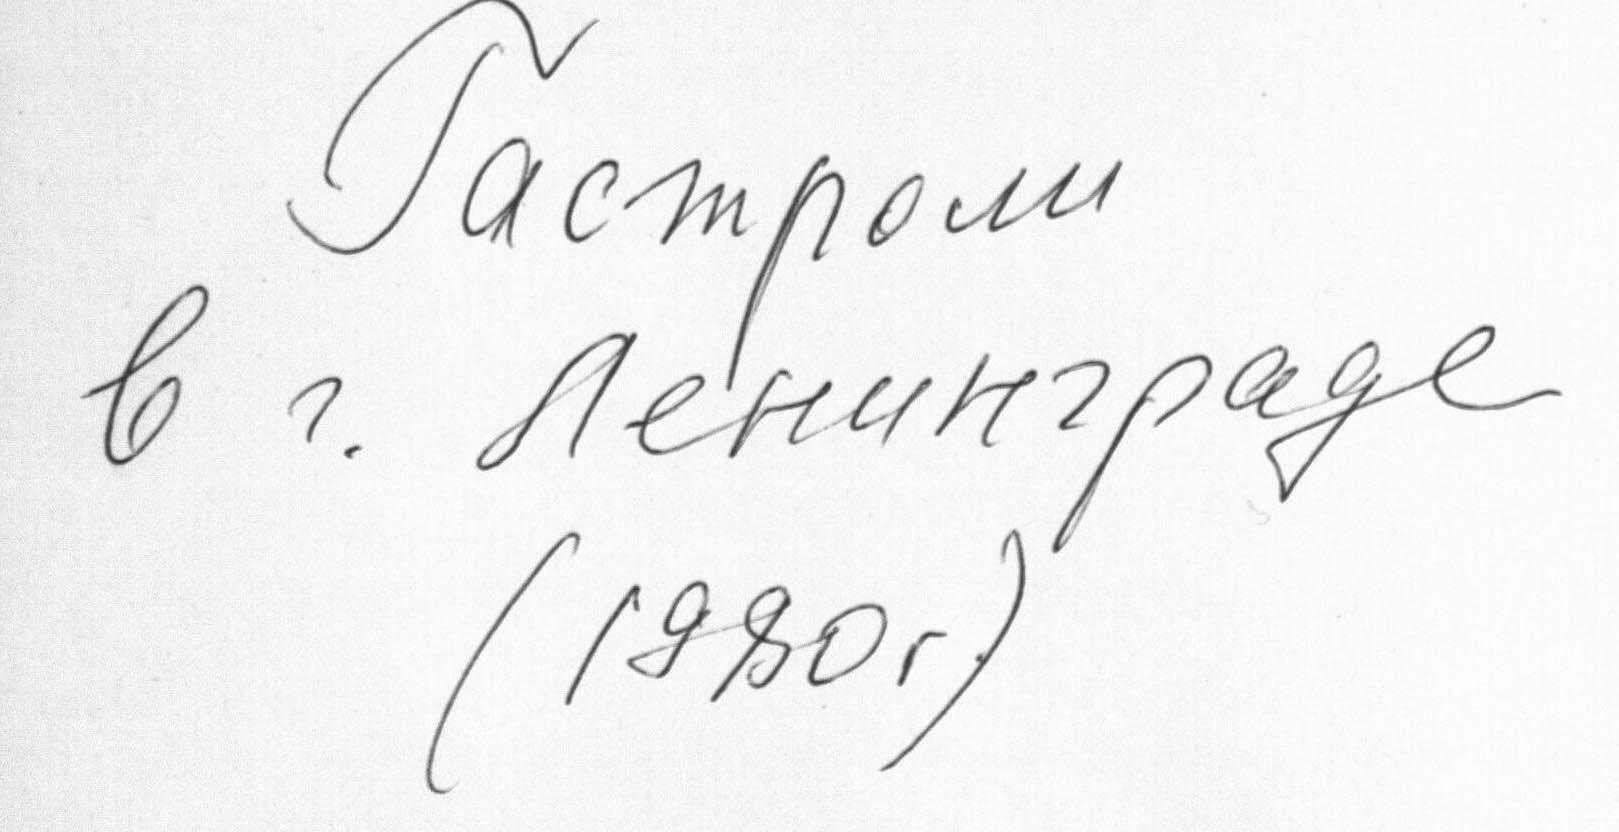 Гастроли
в г. Ленинграде
(1980г.)